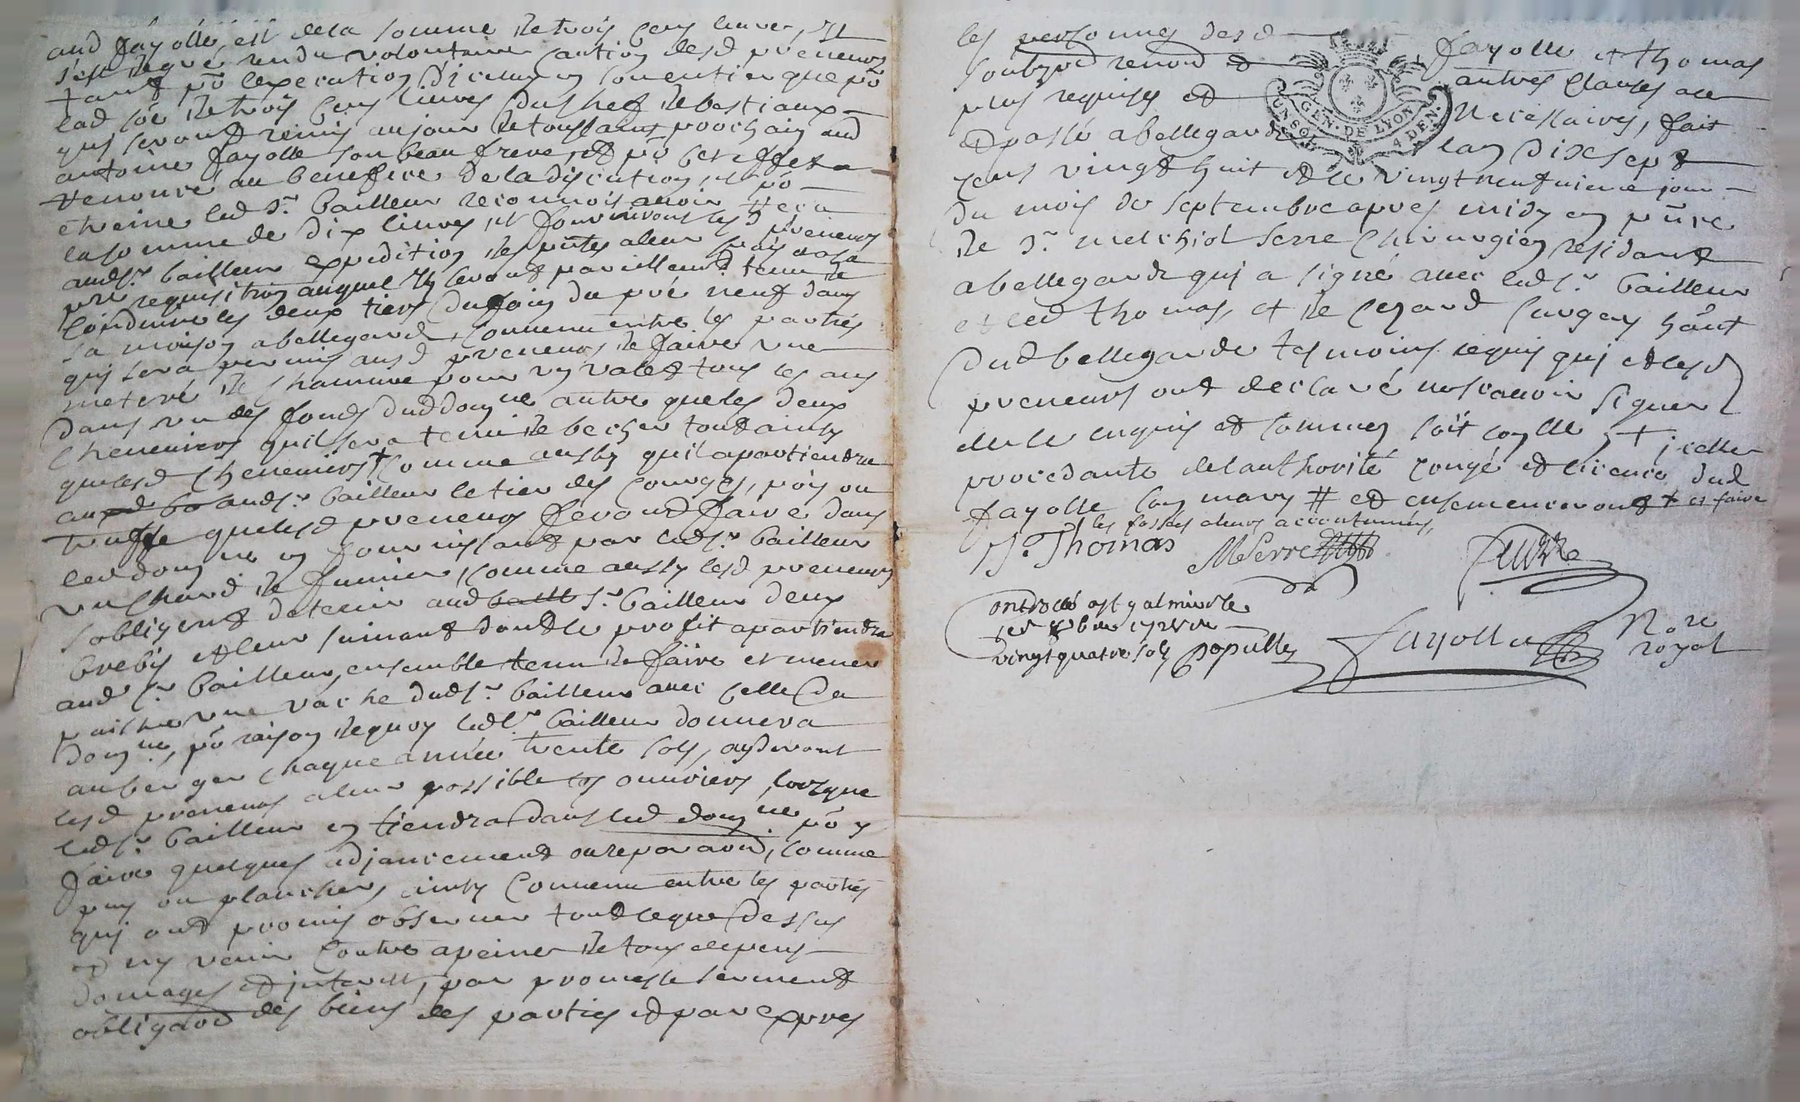 aud fayolle, est dela somme de trois cens livres, Et
s'est led rendu volontaire caution desd preneurs
tant po lexecution dicelluy en son entier que po
lad so de trois cens livres du chef de bestiaux
qui seront remis au jour de toussaint prochain aud
antoine fayolle son beau frere, et po cet effet a
renoncé au benefice de la discution, et po
etreine led Sr. bailleur reconnoit avoir
la somme de dix livres, et fourniront lesd preneurs
audsr. bailleur expedition des pntes a leur frais a sa
pre requisition auquel ils seront pareillemt. tenu de
conduire les deux tiers du foin du pré neuf dans
sa maison a bellegarde, convenu entre les parties
qui sera permis ausd preneurs de faire une
meteré de chanvre pour un valet tous les ans
dans un des fonds dud domne autre que les deux
cheneviers quil sera tenu de becher tout ainsy
que lesd cheneviers + comme aussy quil apartiendra
audsr. bailleur le tier des courges, pois ou
truffe que lesd preneurs feront faire dans
led domne en fournissant par ledsr. bailleur
un chard de fumier, comme aussy lesd preneurs
sobligent de tenir aud Sr. bailleur deux
brebis et leur suivant dont le profit apartiendra
aud Sr. bailleur, ensemble tenu de faire et mener
paitre une vache dudsr. bailleur avec celle du
domne, po raison dequoy ledsr. bailleur donnera
au berger chaque année trente sols, ayderont
lesd preneurs a leur possible les ouvriers lorsque
ledsr. bailleur en tiendra dans led domne po y
faire quelques adjancement ou reparaon, comme
puis ou planchers, ainsy convenu entre les parties
qui ont promis observer tout ce que dessus
et ny venir contre a peine de tous depens
domages et interest, par promesse serment
obligaon des biens des parties et par exprès
les personnes desd fayolle et thomas
soubzon renonon et autres clauses au
plus requises et necessaires, fait
et passé a bellegarde lan dix sept
cens vingt huit et le vingt neufvieme jour
du mois de septembre apres midy en pnce
de Sr. melchiol serre chirurgien residant
a bellegarde qui a signé avec ledsr. bailleur
et led thomas, et de cezard hant
dud bellegarde tesmoins requis qui et lesd
preneurs ont declaré ne scavoir signer
de ce enquis et sommés soit con + icelle
procedante de lauthorité congé et licence dud
fayolle son mary # et ensemenceront + et faire
les fosses a leurs accoutumés,
J. Thomas MSerre
ontrollé a st galmier le
vingt quatre sols Populle
Fayolle Nore
royal
GEN. DE LYON
UN SOL 4 DEN.